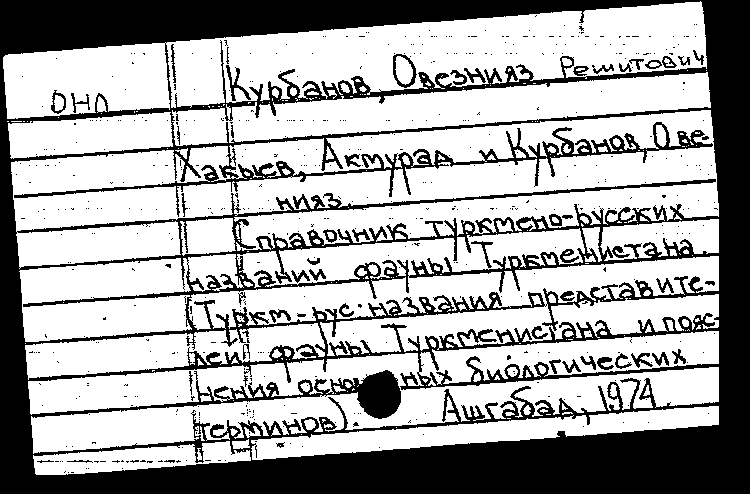 Курбанов, Овезнияз, Решитович
ОНЛ
Хакыев, Актурад и Курбанов, Ове-
нияз.
Справочник туркмено-русских
названий фауны Туркменистана.
(Туркм.-рус. названия представите-
лей фауны Туркменистана и пояс-
нения основных биологических
терминов). Ашгабад, 1974.